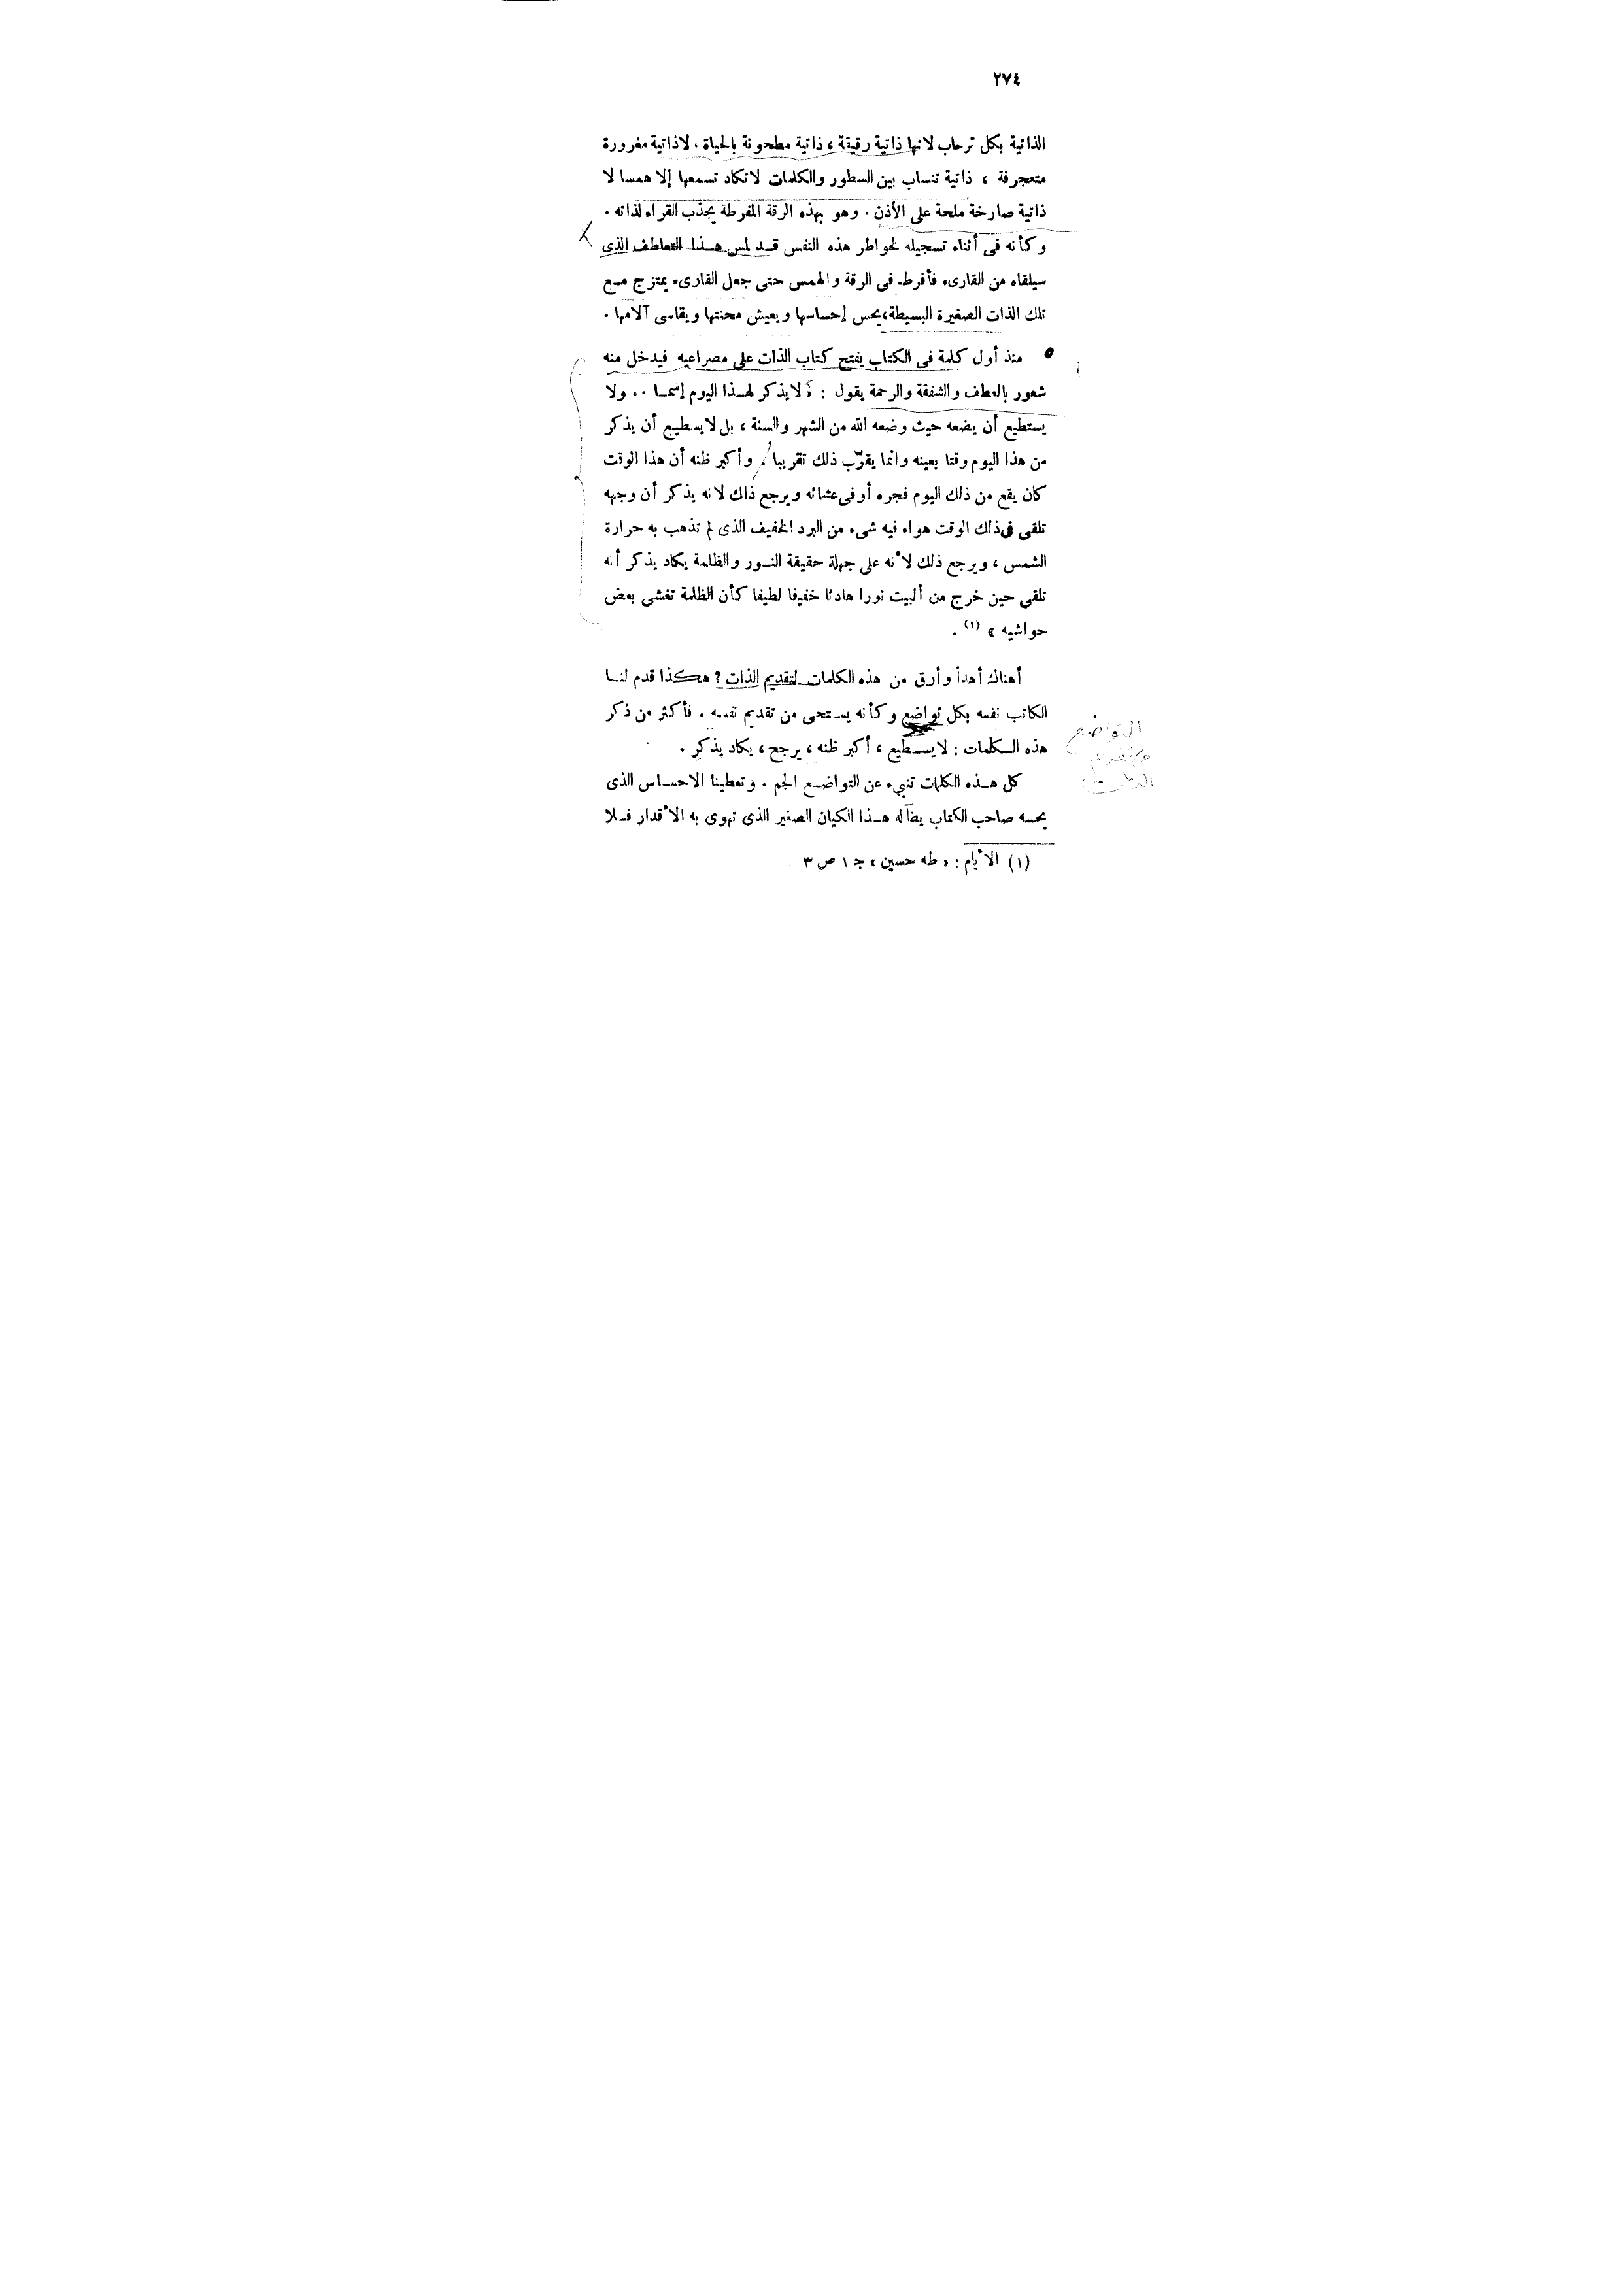 ٢٧٤
الذاتية بكل ترحاب لانها ذاتية رقيقة ، ذاتية مطحونة بالحياة ، لاذاتية مغرورة
متعجرفة ، ذاتية تنساب بين السطور والكلمات لاتكاد تسمعها إلا همسا لا
ذاتية صارخة ملحة على الأذن . وهو بهذه الرقة المفرطة يجذب القراء لذاته .
وكأنه فى أثناء تسجيله لخواطر هذه النفس قد لمس هذا التعاطف الذى
سيلقاه من القارىء فأفرط فى الرقة والهمس حتى جعل القارىء يمتزج مع
تلك الذات الصغيرة البسيطة، يحس إحساسها ويعيش محنتها ويقاسى آلامها .
منذ أول كلمة فى الكتاب يفتح كتاب الذات على مصراعيه فيدخل منه
شعور بالعطف والشفقة والرحمة يقول : « لايذكر لهذا اليوم إسما .. ولا
يستطيع أن يضعه حيث وضعه الله من الشهر والسنة ، بل لايسطيع أن يذكر
من هذا اليوم وقتا بعينه وانما يقرّب ذلك تقريبا . وأكبر ظنه أن هذا الوقت
كان يقع من ذلك اليوم فجره أوفى عشائه ويرجع ذاك لانه يذكر أن وجهه
تلقى فى ذلك الوقت هواء فيه شىء من البرد الخفيف الذى لم تذهب به حرارة
الشمس ، ويرجع ذلك لأنه على جهلة حقيقة النور والظلمة يكاد يذكر أنه
تلقى حين خرج من ألبيت نورا هادئا خفيفا لطيفا كأن الظلمة تغشى بعض
حواشيه » (١) .
أهناك أهدأ وأرق من هذه الكلمات لتقديم الذات ؟ هكذا قدم لنا
الكاتب نفسه بكل تواضع وكأنه يستحى من تقديم نفسه . فأكثر من ذكر
هذه الكلمات : لايسطيع ، أكبر ظنه ، يرجح ، يكاد يذكر .
التواضع
كل هذه الكلمات تنبيء عن التواضع الجم . وتعطينا الاحساس الذى
يحسه صاحب الكتاب بضآله هذا الكيان الصغير الذى تهوى به الأقدار فلا
(١) الأيام : « طه حسين » ج ١ ص ٣